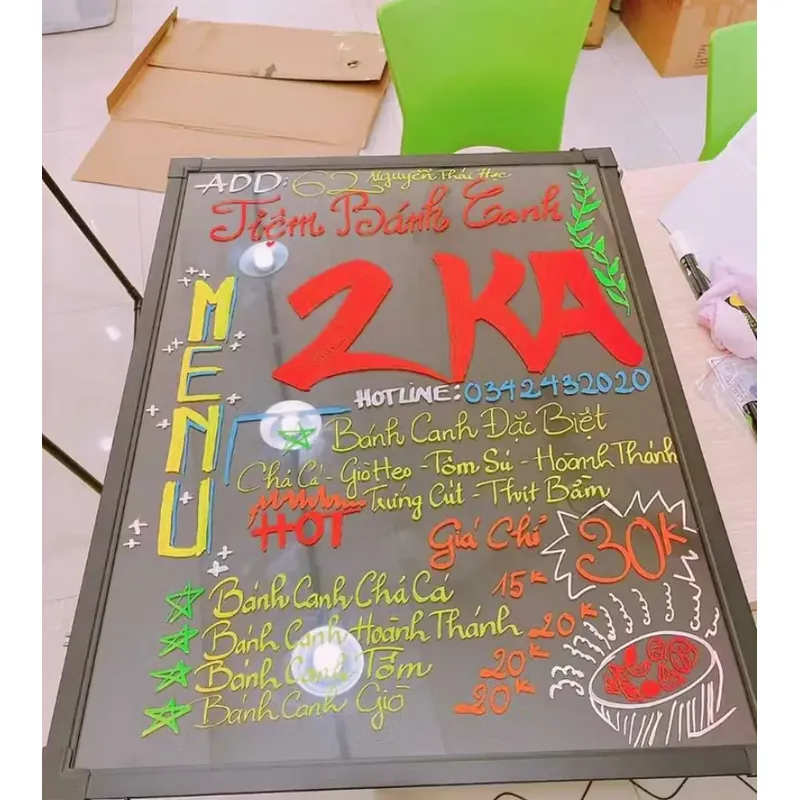 ADD: 62 Nguyễn Thái Học
Tiệm Bánh Canh
2KA
HOTLINE: 0342432020
MENU
Bánh Canh Đặc Biệt
Chả Cá - Giò Heo - Tôm Sú - Hoành Thánh
Trứng Cút - Thịt Bằm
HOT
Giá Chỉ 30K
Bánh Canh Chả Cá 15K
Bánh Canh Hoành Thánh 20K
Bánh Canh Tôm 20K
Bánh Canh Giò 20K